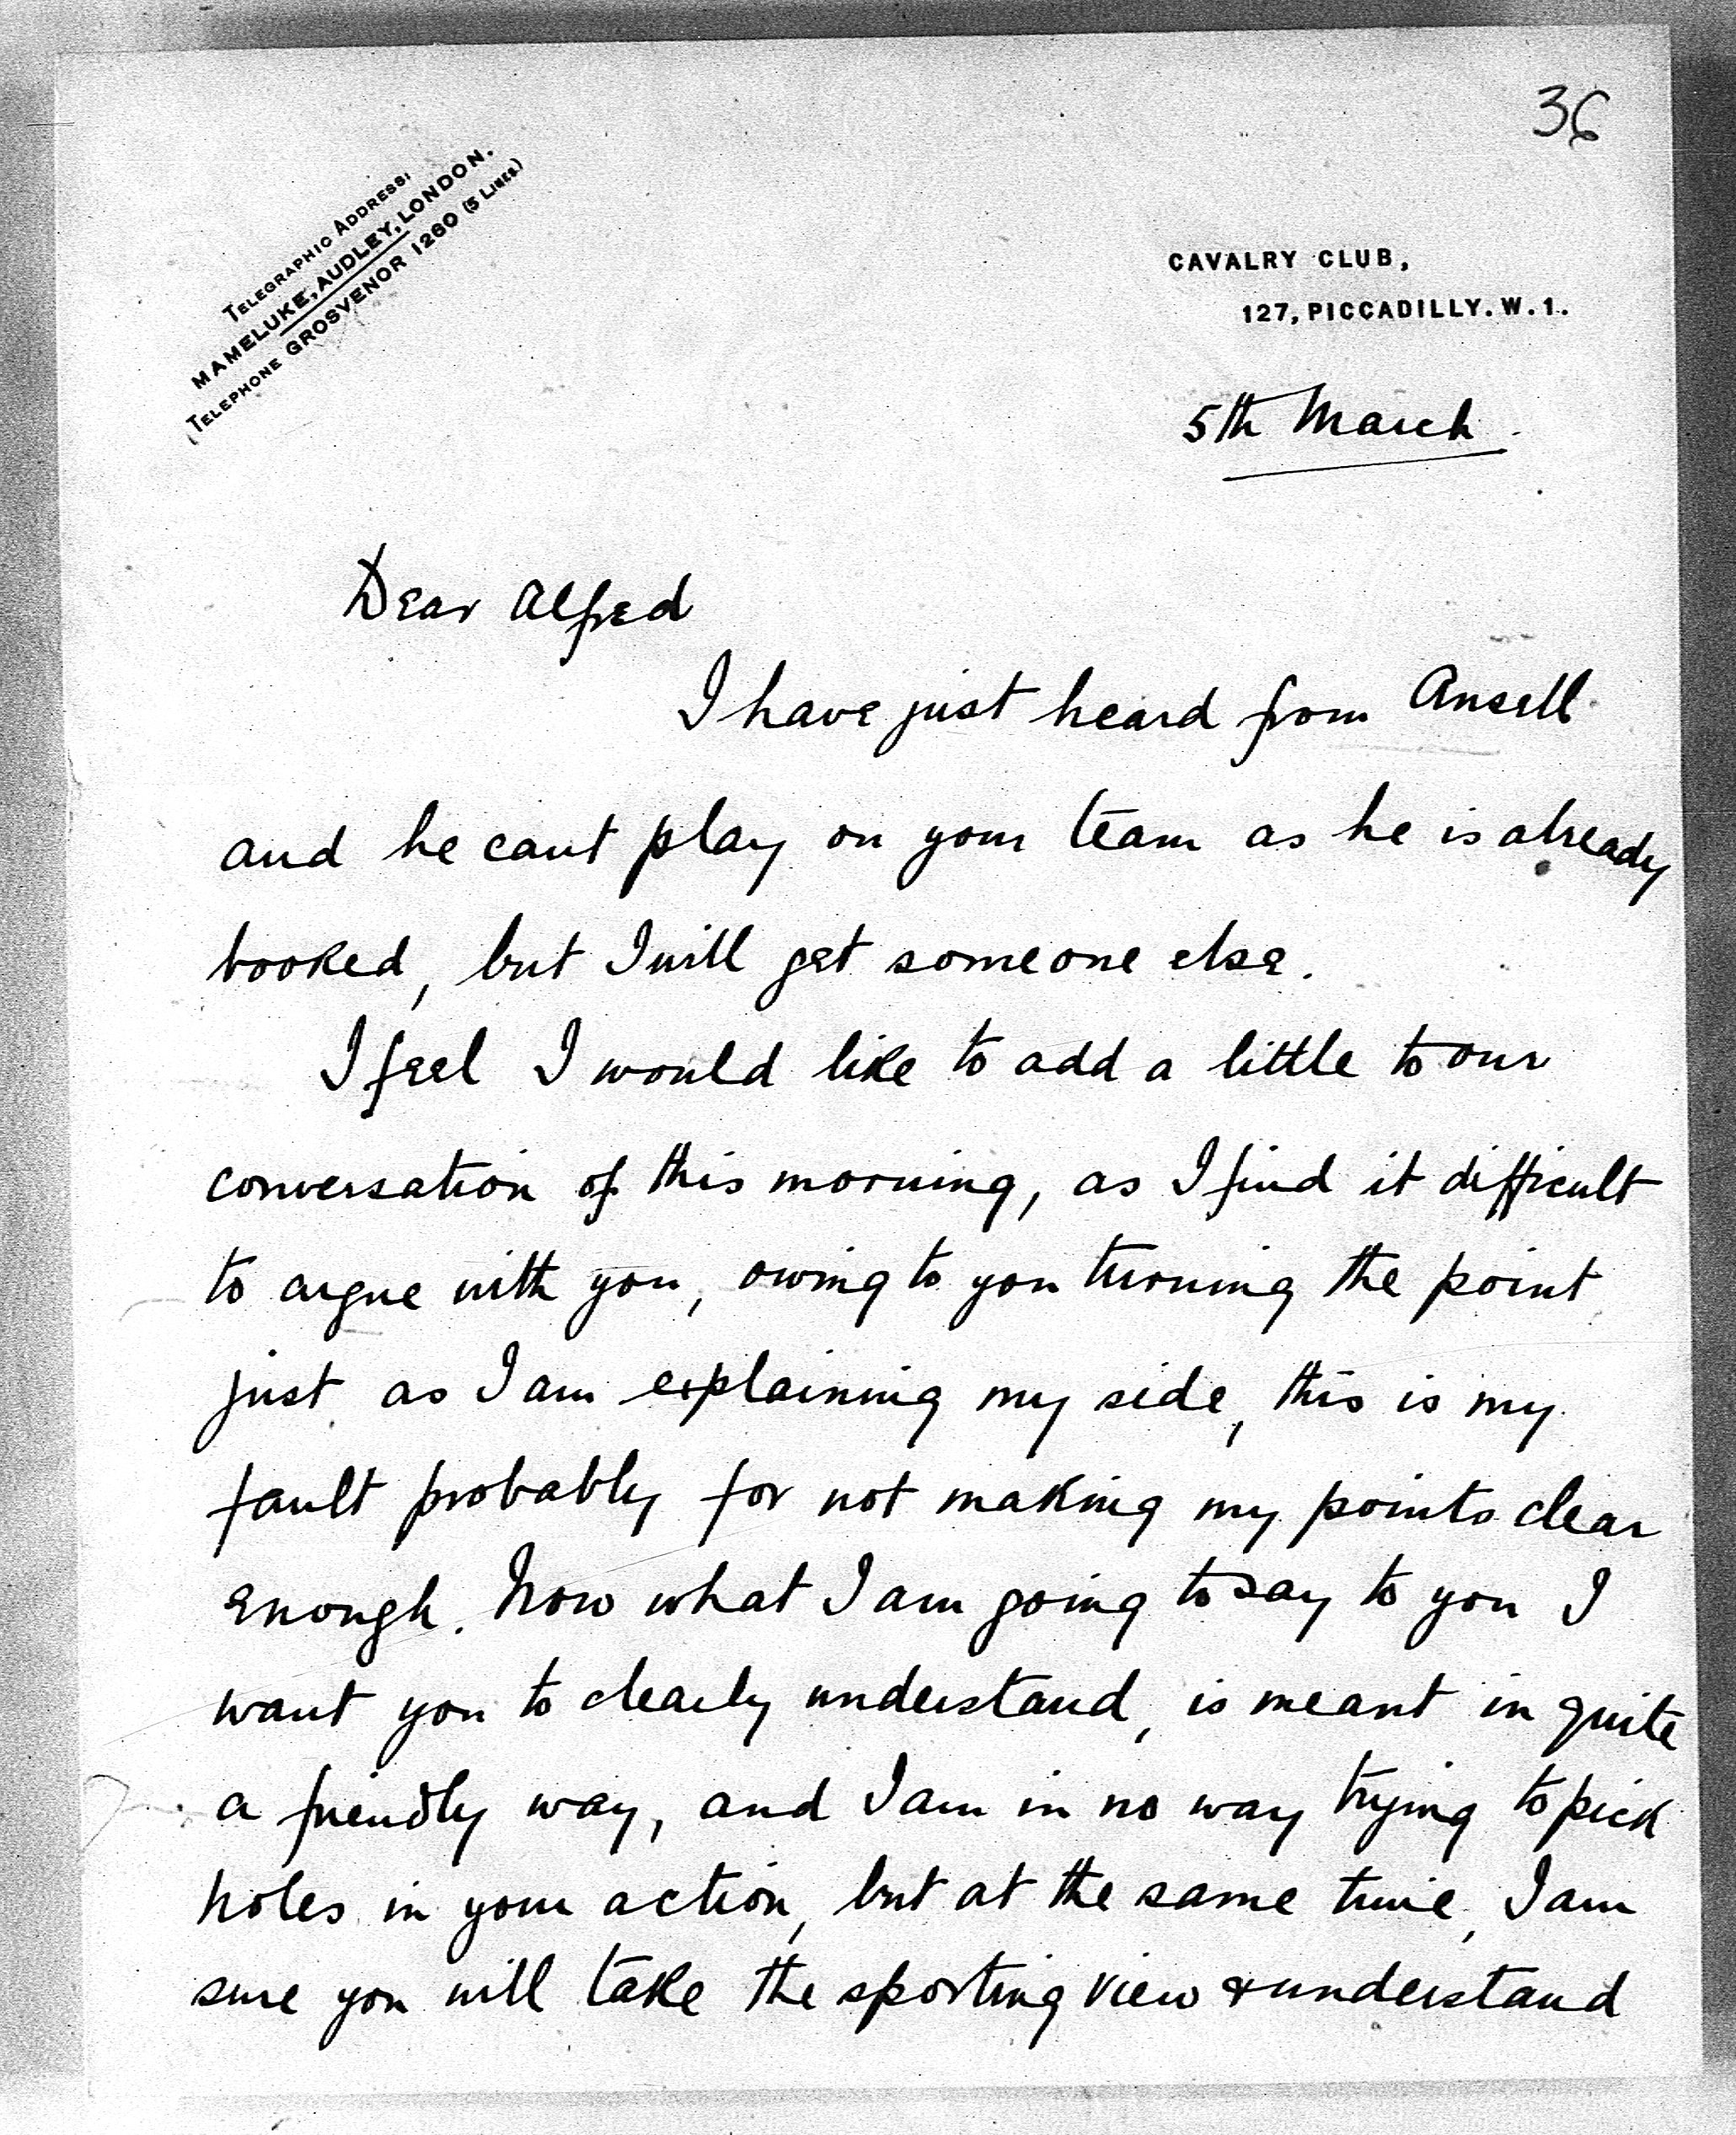 36
TELEGRAPHIC ADDRESS:
MAMELUKE, AUDLEY, LONDON.
TELEPHONE GROSVENOR 1260 (5 LINES)
CAVALRY CLUB,
127, PICCADILLY. W.1.
5th March.
Dear Alfred
I have just heard from Ansell
and he cant play on your team as he is already
booked, but I will get someone else.
I feel I would like to add a little to our
conversation of this morning, as I find it difficult
to argue with you, owing to you turning the point
just as I am explaining my side, this is my
fault probably for not making my points clear
enough. Now what I am going to say to you I
want you to clearly understand, is meant in quite
a friendly way, and I am in no way trying to pick
holes in your action, but at the same time, I am
sure you will take the sporting view & understand